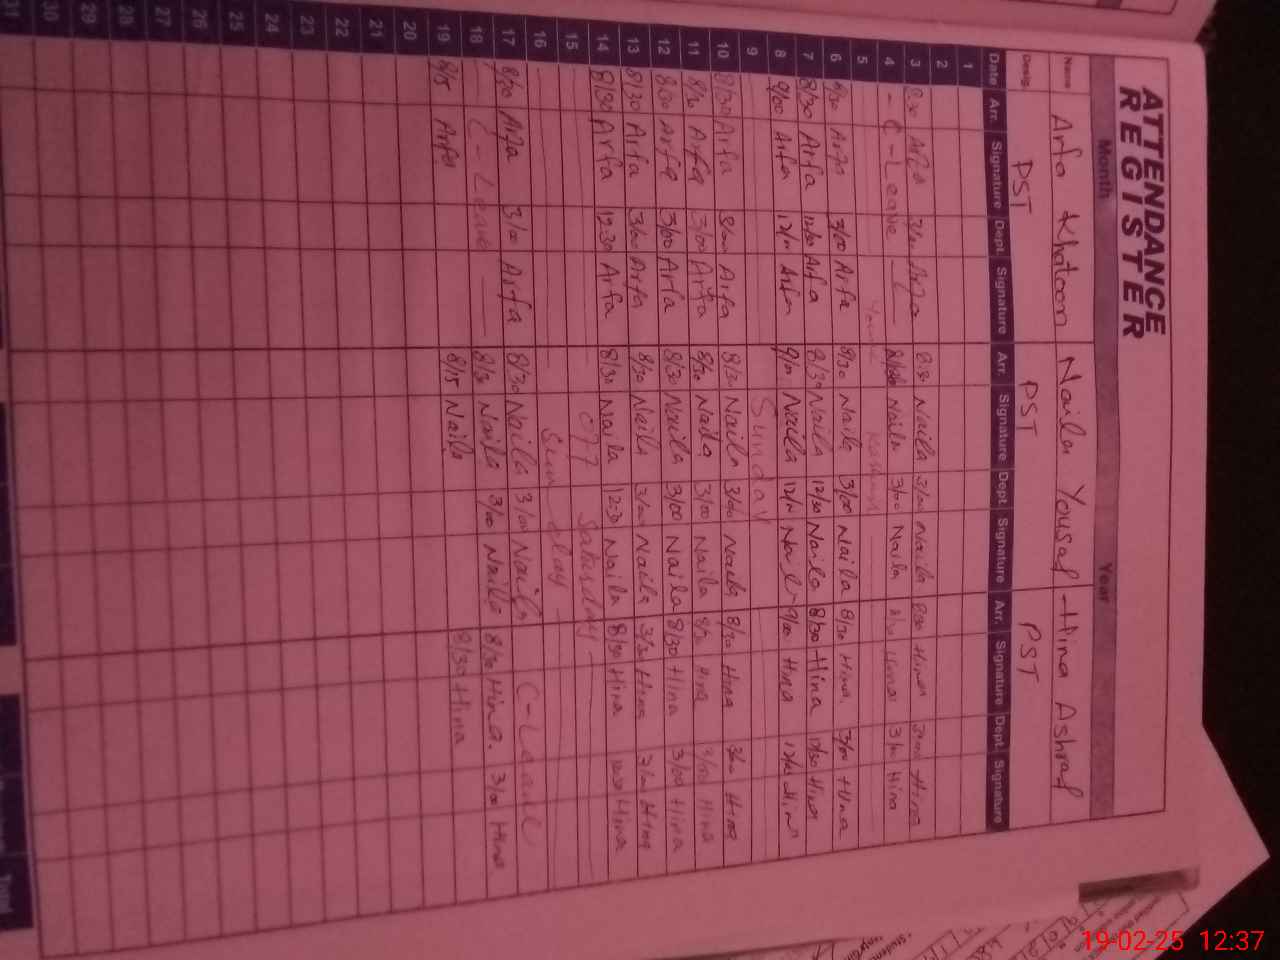 ATTENDANCE
REGISTER
Month Year
Name Arfa Khatoon Naila Yousaf Hina Ashraf
Desig. PST PST PST
Date Arr. Signature Dept. Signature Arr. Signature Dept. Signature Arr. Signature Dept. Signature
1
2
3 8:30 Arfa Arfa 8:30 Naila Naila 8:30 Hina Hina
4 - C - Leave Naila 3/00 Naila Hina Hina
5 Kashmir
6 8/30 Arfa 3/00 Arfa 8/30 Naila 3/00 Naila 8/30 Hina. 3/00 Hina
7 8/30 Arfa 12/30 Arfa 8/30 Naila 12/30 Naila 8/30 Hina 12/30 Hina
8 9/00 Arfa Arfa Naila Naila 9/00 Hina Hina
9 Sunday
10 8/30 Arfa 3/00 Arfa 8/30 Naila 3/00 Naila 8/30 Hina 3/00 Hina
11 8/30 Arfa 3/00 Arfa 8/30 Naila 3/00 Naila 8/30 Hina 3/00 Hina
12 8/30 Arfa 3/00 Arfa 8/30 Naila 3/00 Naila 8/30 Hina 3/00 Hina
13 8/30 Arfa 3/00 Arfa 8/30 Naila 3/00 Naila Hina 3/00 Hina
14 8/30 Arfa 12:30 Arfa 8/30 Naila 12:30 Naila 8/30 Hina Hina
15 Saturday
16 Sunday
17 8/30 Arfa 3/00 Arfa 8/30 Naila 3/00 Naila C-Leave
18 C - Leave 8/30 Naila 3/00 Naila 8/30 Hina. 3/00 Hina
19 8/15 Arfa 8/15 Naila 8/30 Hina
20
21
22
23
24
25
26
27
28
29
30
31
Total
19-02-25 12:37